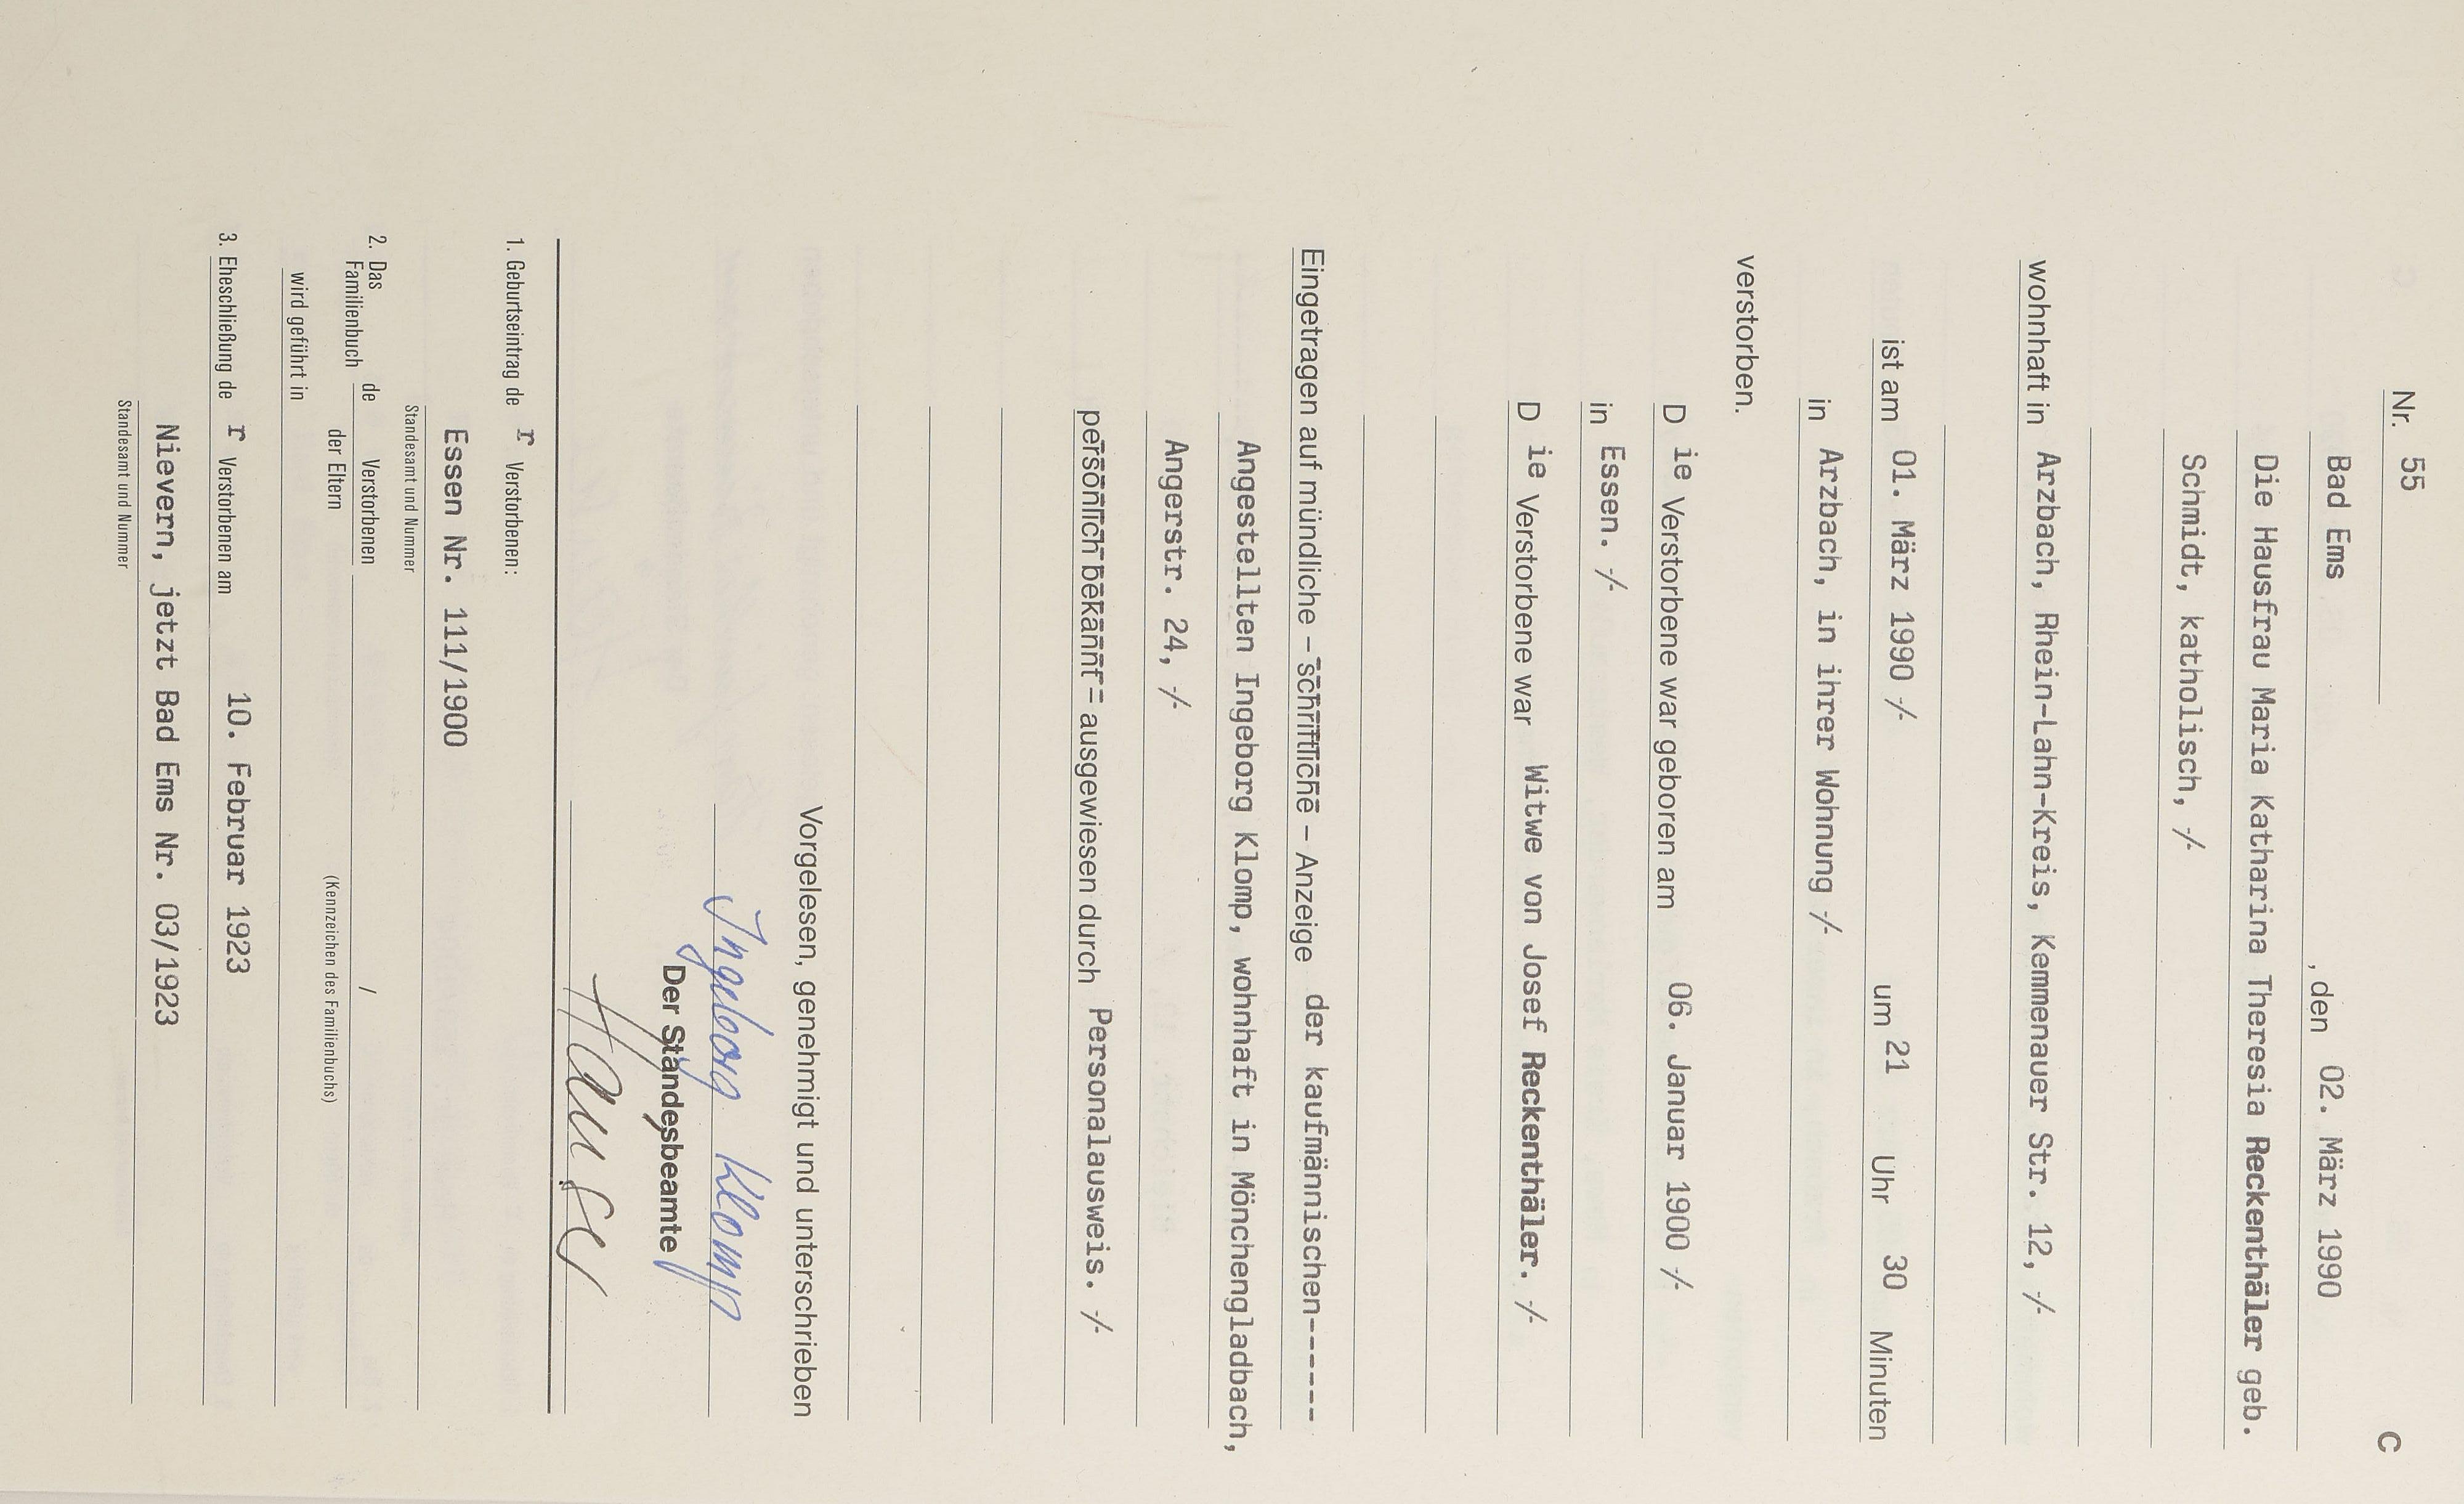 Nr. 55
C
Bad Ems , den 02. März 1990
Die Hausfrau Maria Katharina Theresia Reckenthäler geb.
Schmidt, katholisch, -/-
wohnhaft in Arzbach, Rhein-Lahn-Kreis, Kemmenauer Str. 12, -/-
ist am 01. März 1990 -/- um 21 Uhr 30 Minuten
in Arzbach, in ihrer Wohnung -/-
verstorben.
D ie Verstorbene war geboren am 06. Januar 1900 -/-
in Essen. -/-
D ie Verstorbene war Witwe von Josef Reckenthäler. -/-
Eingetragen auf mündliche – schriftliche – Anzeige der kaufmännischen------
Angestellten Ingeborg Klomp, wohnhaft in Mönchengladbach,
Angerstr. 24, -/-
persönlich bekannt – ausgewiesen durch Personalausweis. -/-
Vorgelesen, genehmigt und unterschrieben
Ingeborg Klomp
Der Standesbeamte
1. Geburtseintrag de r Verstorbenen:
Essen Nr. 111/1900
Standesamt und Nummer
2. Das Familienbuch de Verstorbenen /
der Eltern (Kennzeichen des Familienbuchs)
wird geführt in
3. Eheschließung de r Verstorbenen am 10. Februar 1923
Nievern, jetzt Bad Ems Nr. 03/1923
Standesamt und Nummer